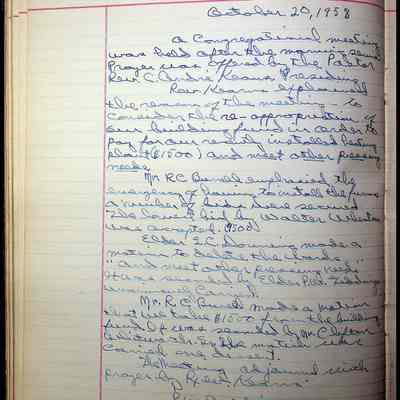 October 20, 1958
A Congregational meeting
was held after the morning
Prayer was offered by the Pastor
Rev. C. Andre Kearns Presiding.
Rev. Kearns explained
the reason of the meeting - to
consider the re-appropriation of
our building fund in order to
pay for our recently installed heating
plant ($1500) and meet other pressing
needs.
Mr. R.C. emphasized the
emergency of having to install the
a number of bids were secured
The lowest bid by Walter
was accepted. (1500)
Elder E.C. Downing made a
motion to delete the words
"and meet other pressing needs"
It was seconded by Elder
unanimously Carried.
Mr. R.C. made a motion
that we take $1500 from the building
fund. It was seconded by Mr. Clifton
Whitworth. The motion was
carried one dissent.
The Meeting adjourned with
prayer by Rev. Kearns.